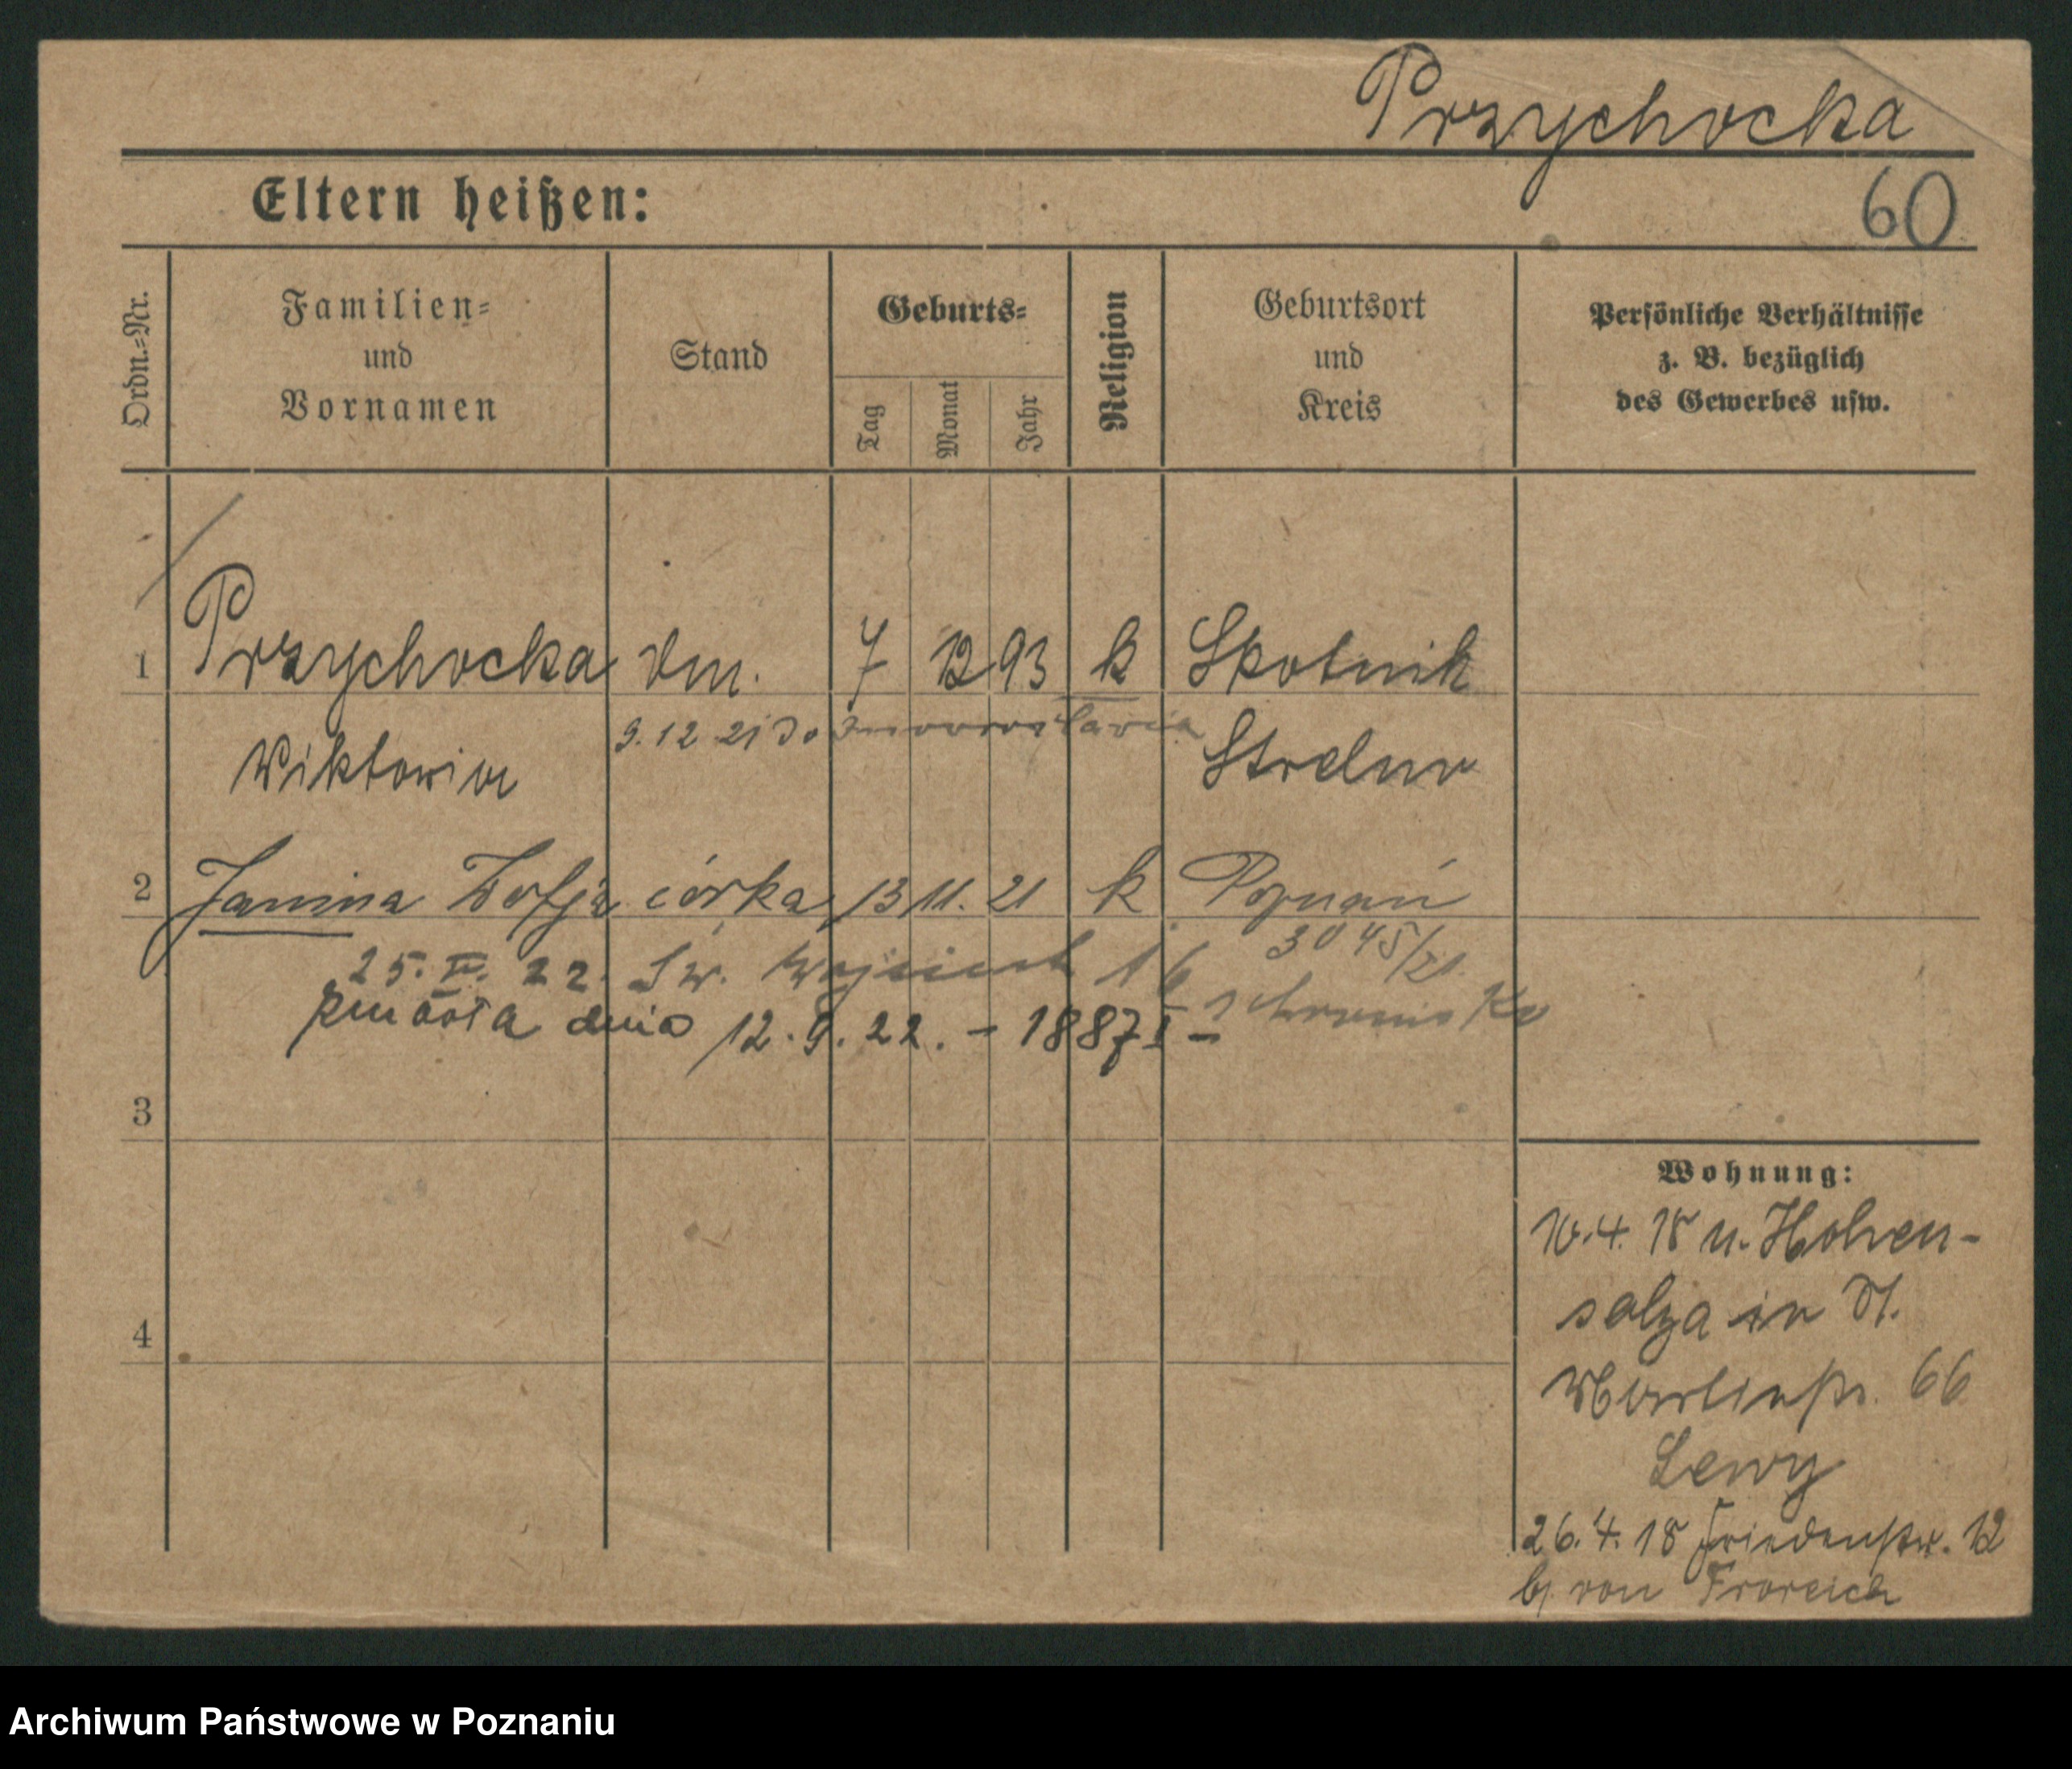 Przychocka
Eltern heißen:
60
Ordn.-Nr.
Familien- und Vornamen
Stand
Geburts-
Tag
Monat
Jahr
Religion
Geburtsort und Kreis
Persönliche Verhältnisse
z. B. bezüglich
des Gewerbes usw.
1 Przychocka 7 12 93 k Skotnik
9.12 21 do Inowrocławia
Wiktoria Strelno
2 Janina Zofja córka 13 11. 21 k Poznań
3045/21
25. 22. Św. Wojciech 16
schronisko
zmarła dnia 12. 9. 22. – 1887 I –
3
4
Wohnung:
10.4. 18 v. Hohen-
salza in
66
Lewy
26.4. 18 Friedenstr. 12
b/ von
Archiwum Państwowe w Poznaniu